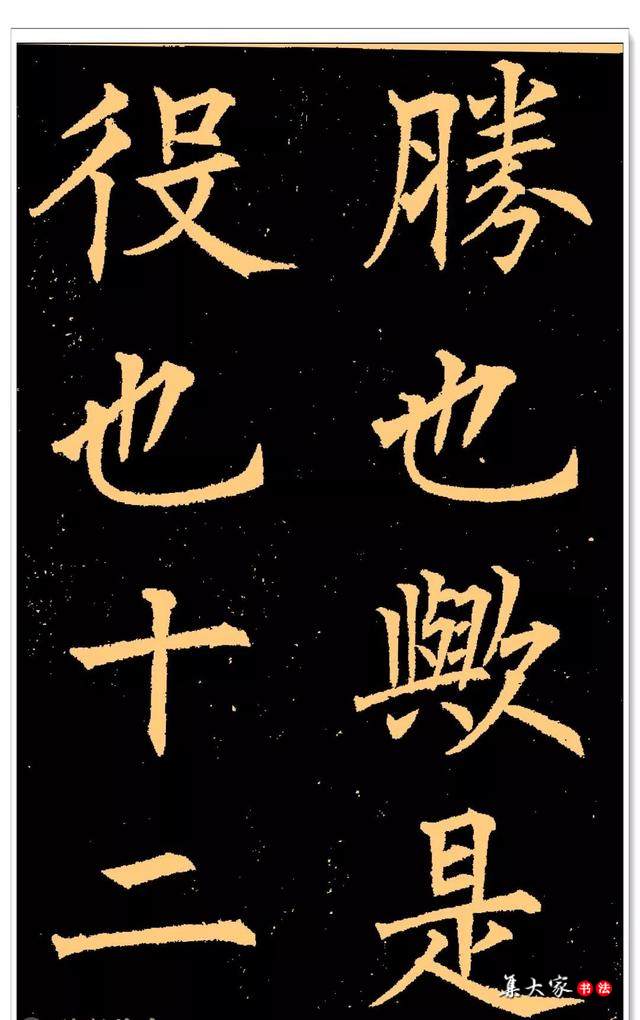 勝也歟是
役也十二
集大家书法